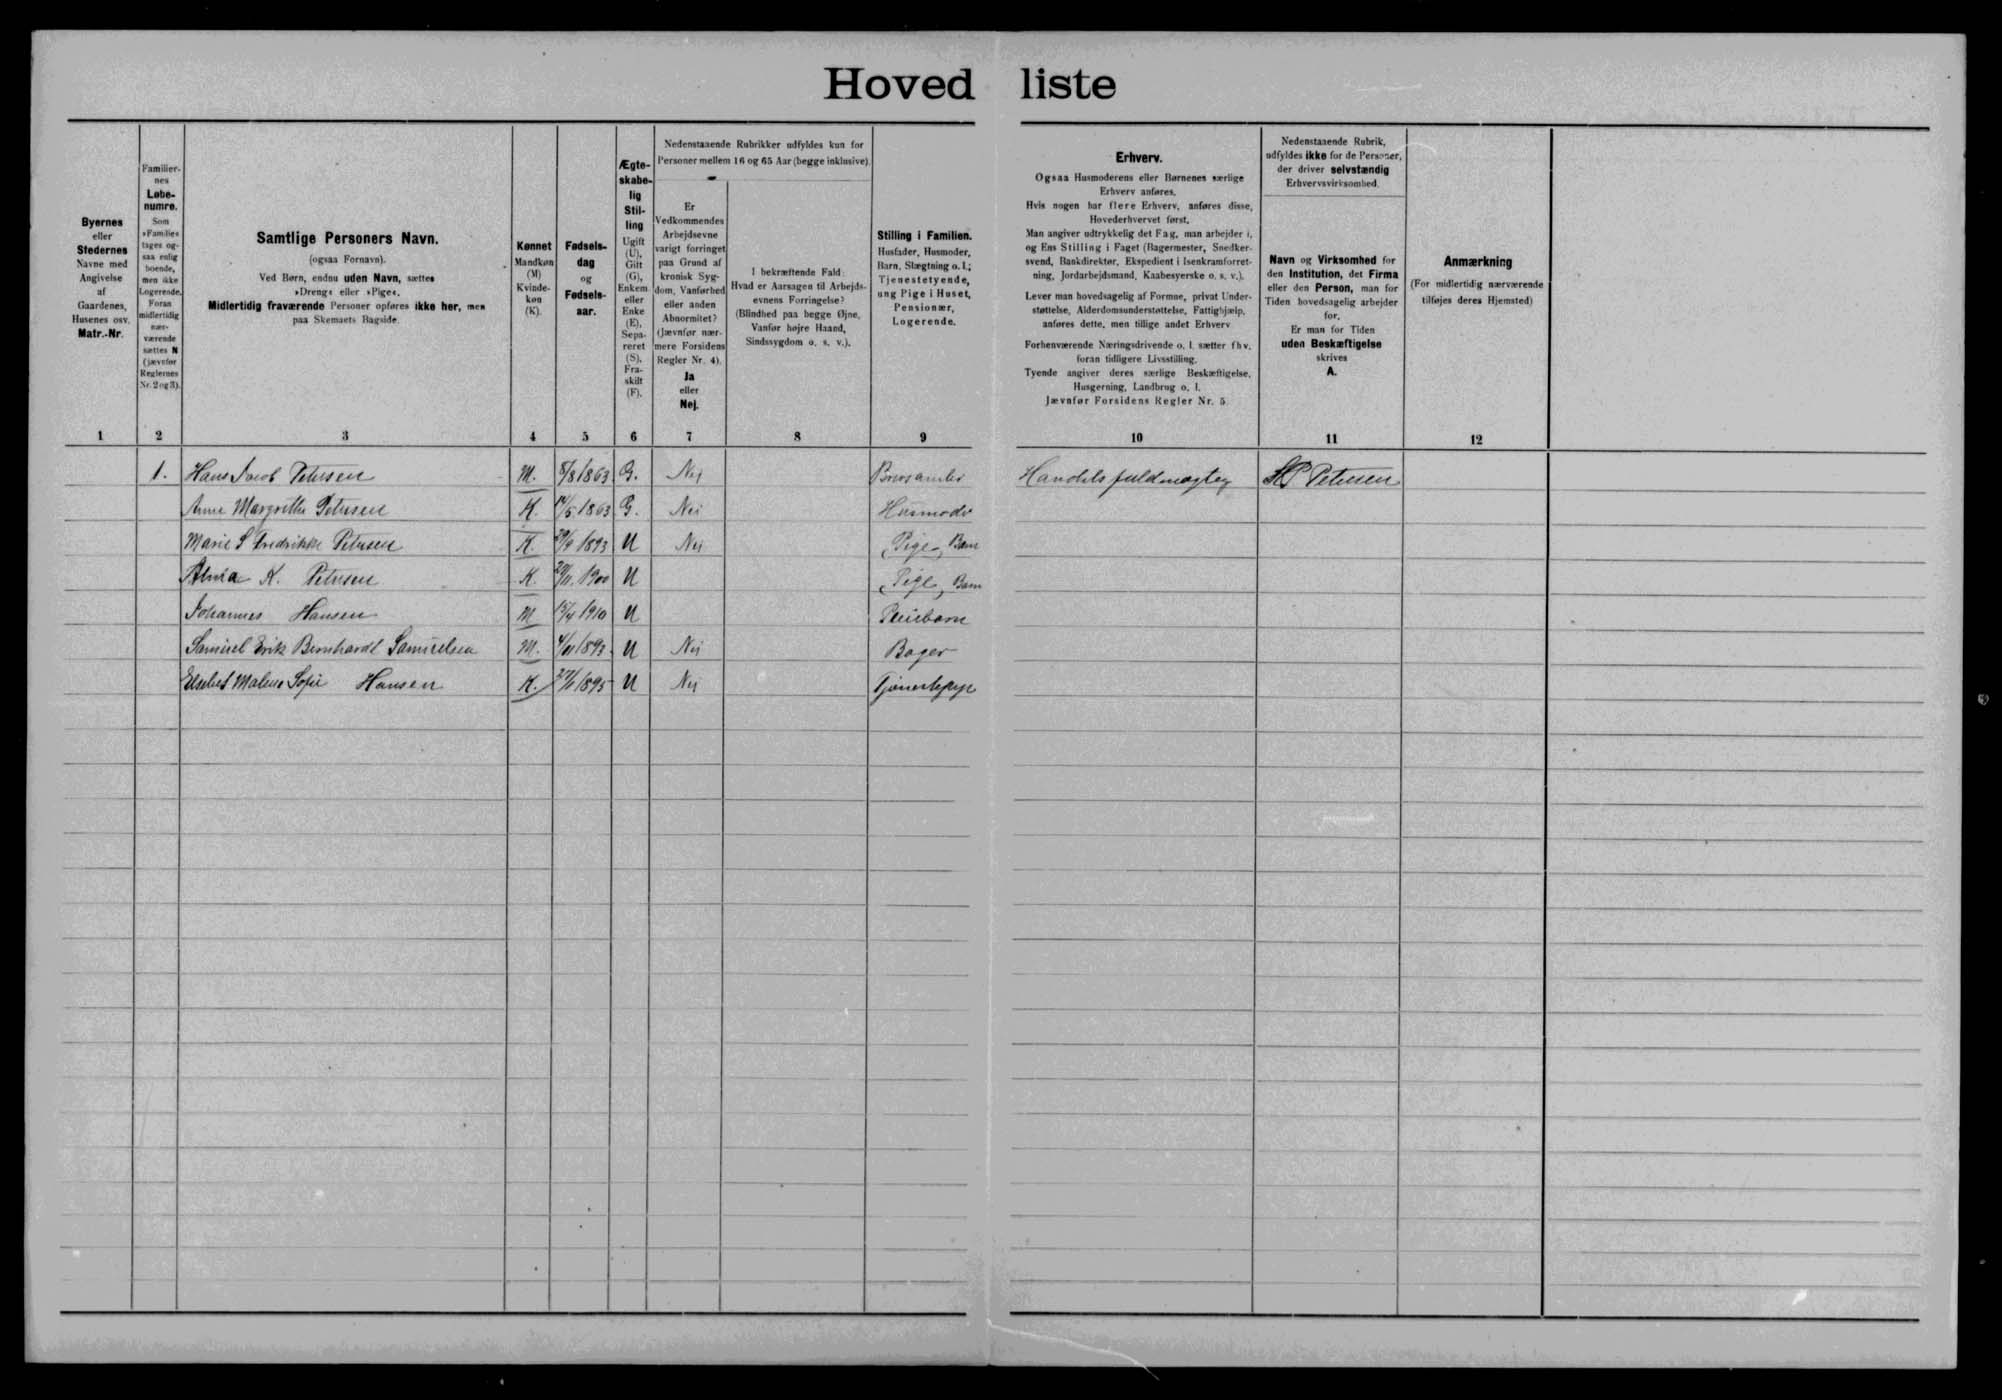 Hovedliste
Byernes
eller
Stedernes
Navne med
Angivelse
af
Gaardenes,
Husenes osv.
Matr.-Nr.
Familier-
nes
Løbe-
numre.
Som
»Familie«
tages og-
saa enlig
boende,
men ikke
Logerende.
Foran
midlertidig
nær-
værende
sættes N
(jævnfør
Reglernes
Nr. 2 og 3).
Samtlige Personers Navn.
(ogsaa Fornavn).
Ved Børn, endnu uden Navn, sættes
»Dreng« eller »Pige«.
Midlertidig fraværende Personer opføres ikke her, men
paa Skemaets Bagside.
Kønnet
Mandkøn
(M)
Kvinde-
køn
(K).
Fødsels-
dag
og
Fødsels-
aar.
Ægte-
skabe-
lig
Stil-
ling
Ugift
(U),
Gift
(G),
Enkem
eller
Enke
(E),
Sepa-
reret
(S),
Fra-
skilt
(F).
Nedenstaaende Rubrikker udfyldes kun for
Personer mellem 16 og 65 Aar (begge inklusive).
Er
Vedkommendes
Arbejdsevne
varigt forringet
paa Grund af
kronisk Syg-
dom, Vanførhed
eller anden
Abnormitet?
(Jævnfør nær-
mere Forsidens
Regler Nr. 4).
Ja
eller
Nej.
I bekræftende Fald:
Hvad er Aarsagen til Arbejds-
evnens Forringelse?
(Blindhed paa begge Øjne,
Vanfør højre Haand,
Sindssygdom o. s. v.).
Stilling i Familien.
Husfader, Husmoder,
Barn, Slægtning o. l.;
Tjenestetyende,
ung Pige i Huset,
Pensionær,
Logerende.
Erhverv.
Ogsaa Husmoderens eller Børnenes særlige
Erhverv anføres.
Hvis nogen har flere Erhverv, anføres disse,
Hovederhvervet først.
Man angiver udtrykkelig det Fag, man arbejder i,
og Ens Stilling i Faget (Bagermester, Snedker-
svend, Bankdirektør, Ekspedient i Isenkramforret-
ning, Jordarbejdsmand, Kaabesyerske o. s. v.).
Lever man hovedsagelig af Formue, privat Under-
støttelse, Alderdomsunderstøttelse, Fattighjælp,
anføres dette, men tillige andet Erhverv
Forhenværende Næringsdrivende o. l. sætter fhv.
foran tidligere Livsstilling.
Tyende angiver deres særlige Beskæftigelse,
Husgerning, Landbrug o. l.
Jævnfør Forsidens Regler Nr. 5.
Nedenstaaende Rubrik,
udfyldes ikke for de Personer,
der driver selvstændig
Erhvervsvirksomhed.
Navn og Virksomhed for
den Institution, det Firma
eller den Person, man for
Tiden hovedsagelig arbejder
for.
Er man for Tiden
uden Beskæftigelse
skrives
A.
Anmærkning
(For midlertidig nærværende
tilføjes deres Hjemsted)
1 2 3 4 5 6 7 8 9 10 11 12
1. Hans Jacob Petersen M. 8/8 1863 G. Nej Handelsfuldmægtig Petersen
Anne Margrethe Petersen K. 14/5 1863 G. Nei Husmoder
Marie S Fredrikke Petersen K. 29/9 1893 U Nej Pige, Barn
K. Petersen K. 1900 U Pige, Barn
Johannes Hansen M 15/4 1910 U Pleiebarn
Samuel Erik Bernhardt Samuelsen M. 1893 U Nej Bager
Elsebet Malene Sofie Hansen K. 1895 U Nej